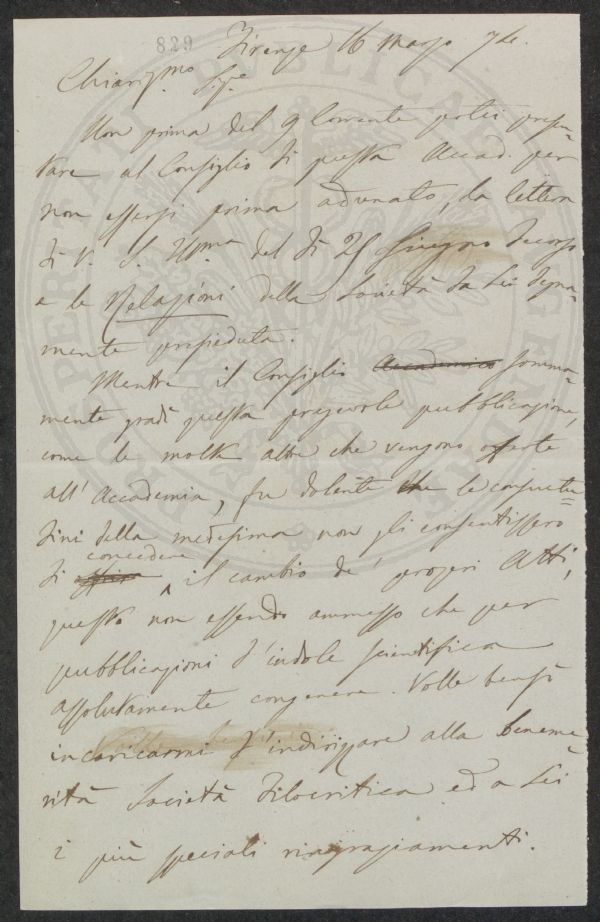 829
Firenze 16 Marzo 74.
Chiariz.mo Sig.e
Non prima del 9 Corrente potei presen-
tare al Consiglio di questa Accad. per
non essersi prima adunato, la lettera
di V. S. Ill.ma del dì 25 Giugno decorso
e le Relazioni della Società da Lei degna-
mente presieduta.
Mentre il Consiglio Accademico somma-
mente gradì questa pregevole pubblicazione,
come le molte altre che vengono offerte
all'Accademia, fu dolente che le consuetu-
dini della medesima non gli consentissero
di concedere il cambio de' proprj Atti,
questo non essendo ammesso che per
pubblicazioni d'indole scientifica
assolutamente congenere. Volle bensì
incaricarmi d'indirizzare alla beneme-
rita Società Filocritica ed a Lei
i più speciali ringraziamenti.